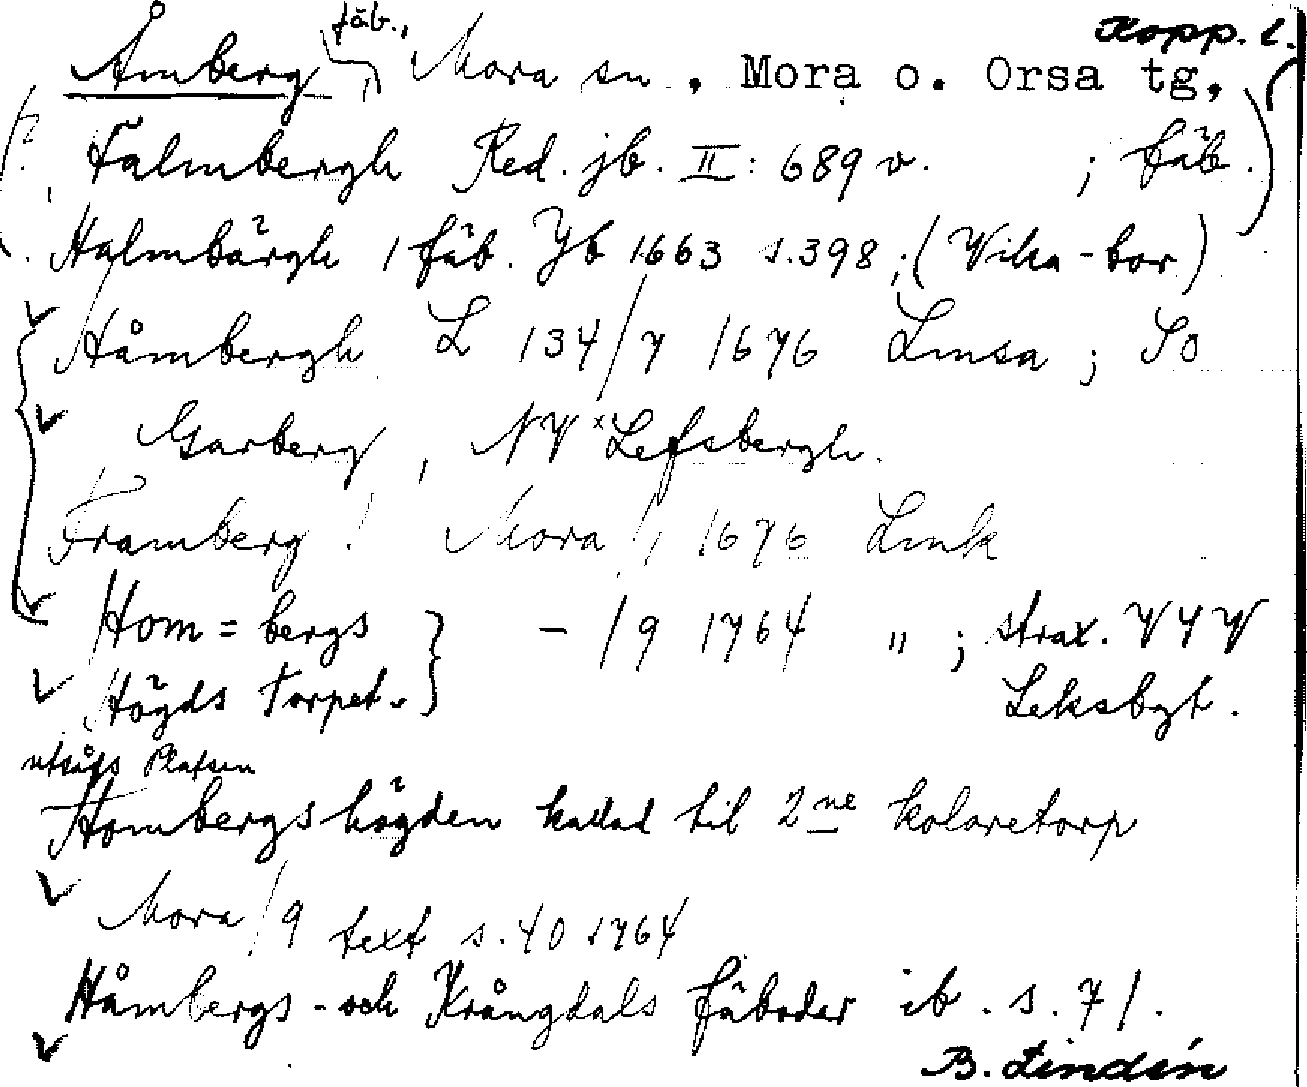 Kopp. l.
Åmberg fäb., Mora sn, Mora o. Orsa tg,
(? Falmbergh Red. jb. II: 689 v. ; fäb.)
Halmbärgh 1 fäb. Jb 1663 s. 398; (Vika-bor)
Håmbergh L 134/7 1676 Lmsa; SO
Garberg, NV ˣLefsbergh.
Framberg! Mora/1 1676 Lmk
Hom = bergs } - /9 1764 " ; strax. VYV
Högds Torpet. Leksbgt.
utsågs Platsen
Hombergshögden kallad til 2ne kolaretorp
Mora/9 text s. 40 1764
Håmbergs- och Krångdals fäboder ib. s. 71.
B. Lindén